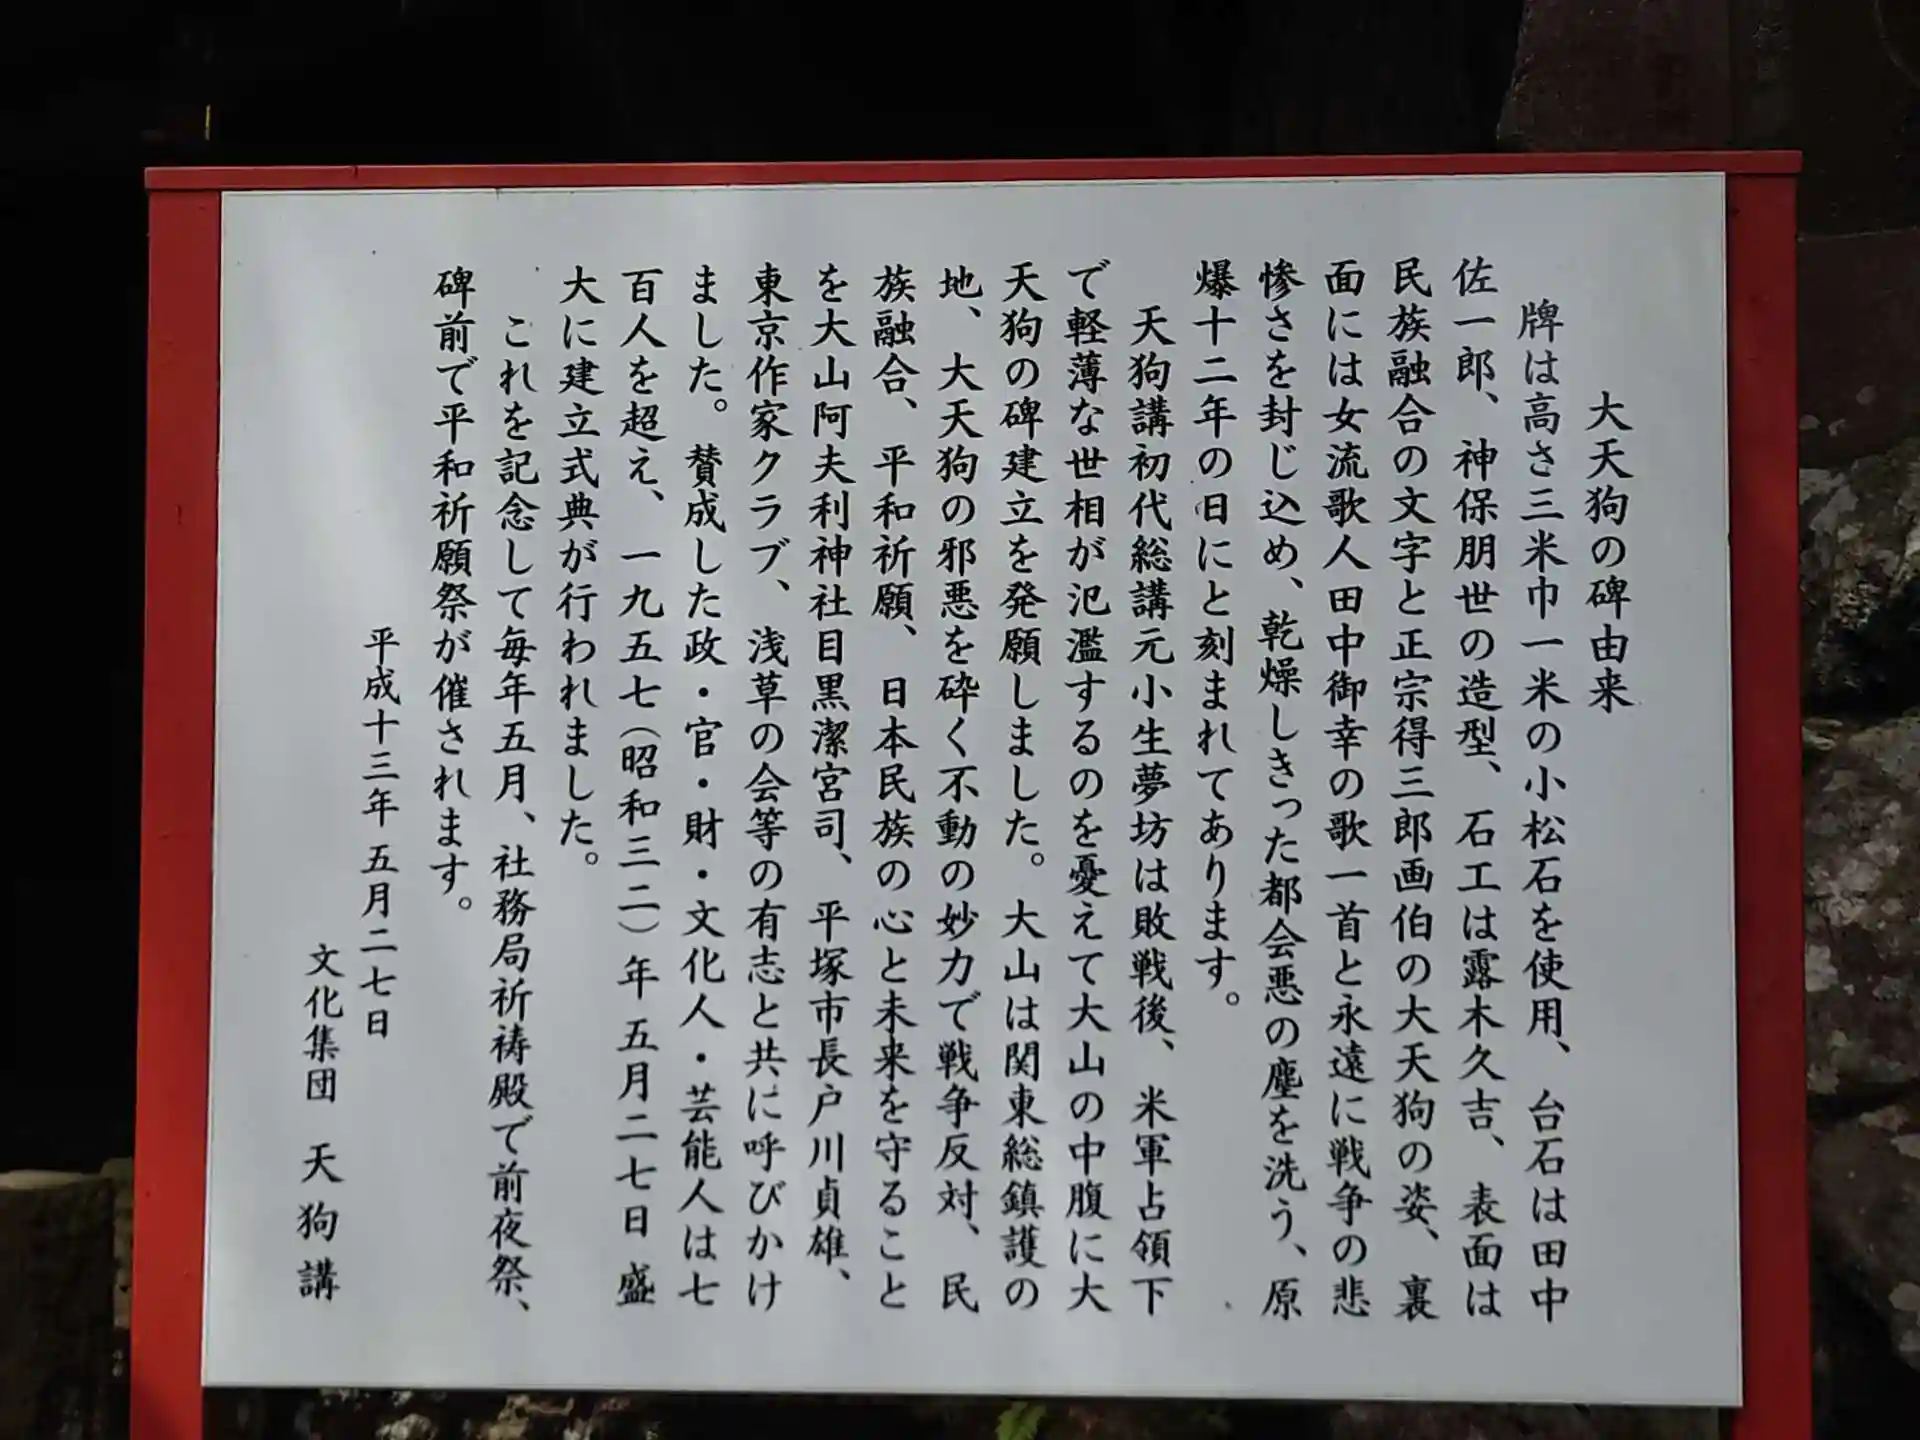 大天狗の碑由来
牌は高さ三米巾一米の小松石を使用、台石は田中
佐一郎、神保朋世の造型、石工は露木久吉、表面は
民族融合の文字と正宗得三郎画伯の大天狗の姿、裏
面には女流歌人田中御幸の歌一首と永遠に戦争の悲
惨さを封じ込め、乾燥しきった都会悪の塵を洗う、原
爆十二年の日にと刻まれてあります。
天狗講初代総講元小生夢坊は敗戦後、米軍占領下
で軽薄な世相が氾濫するのを憂えて大山の中腹に大
天狗の碑建立を発願しました。大山は関東総鎮護の
地、大天狗の邪悪を砕く不動の妙力で戦争反対、民
族融合、平和祈願、日本民族の心と未来を守ること
を大山阿夫利神社目黒潔宮司、平塚市長戸川貞雄、
東京作家クラブ、浅草の会等の有志と共に呼びかけ
ました。賛成した政・官・財・文化人・芸能人は七
百人を超え、一九五七(昭和三二)年五月二七日盛
大に建立式典が行われました。
これを記念して毎年五月、社務局祈祷殿で前夜祭、
碑前で平和祈願祭が催されます。
平成十三年 五月二七日
文化集団 天狗講